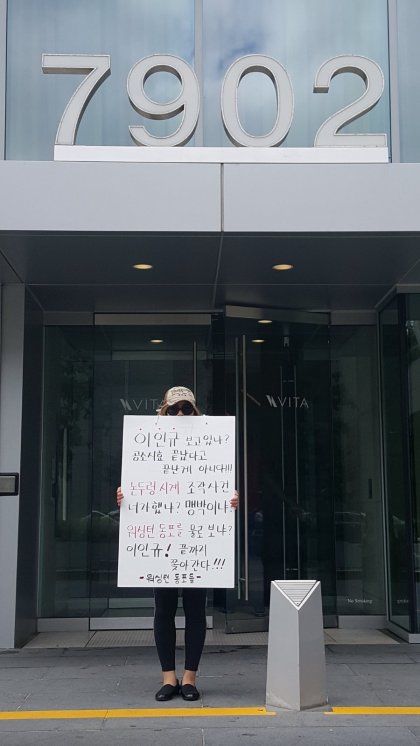 7902
VITA
VITA
이인규 보고있나?
공소시효 끝났다고
끝난게 아니다!!!
논두렁시계 조작사건
너가했나? 맹박이냐?
워싱턴 동포를 물로 보나?
이인규! 끝까지
쫓아간다!!!
-워싱턴 동포들-
No Smoking